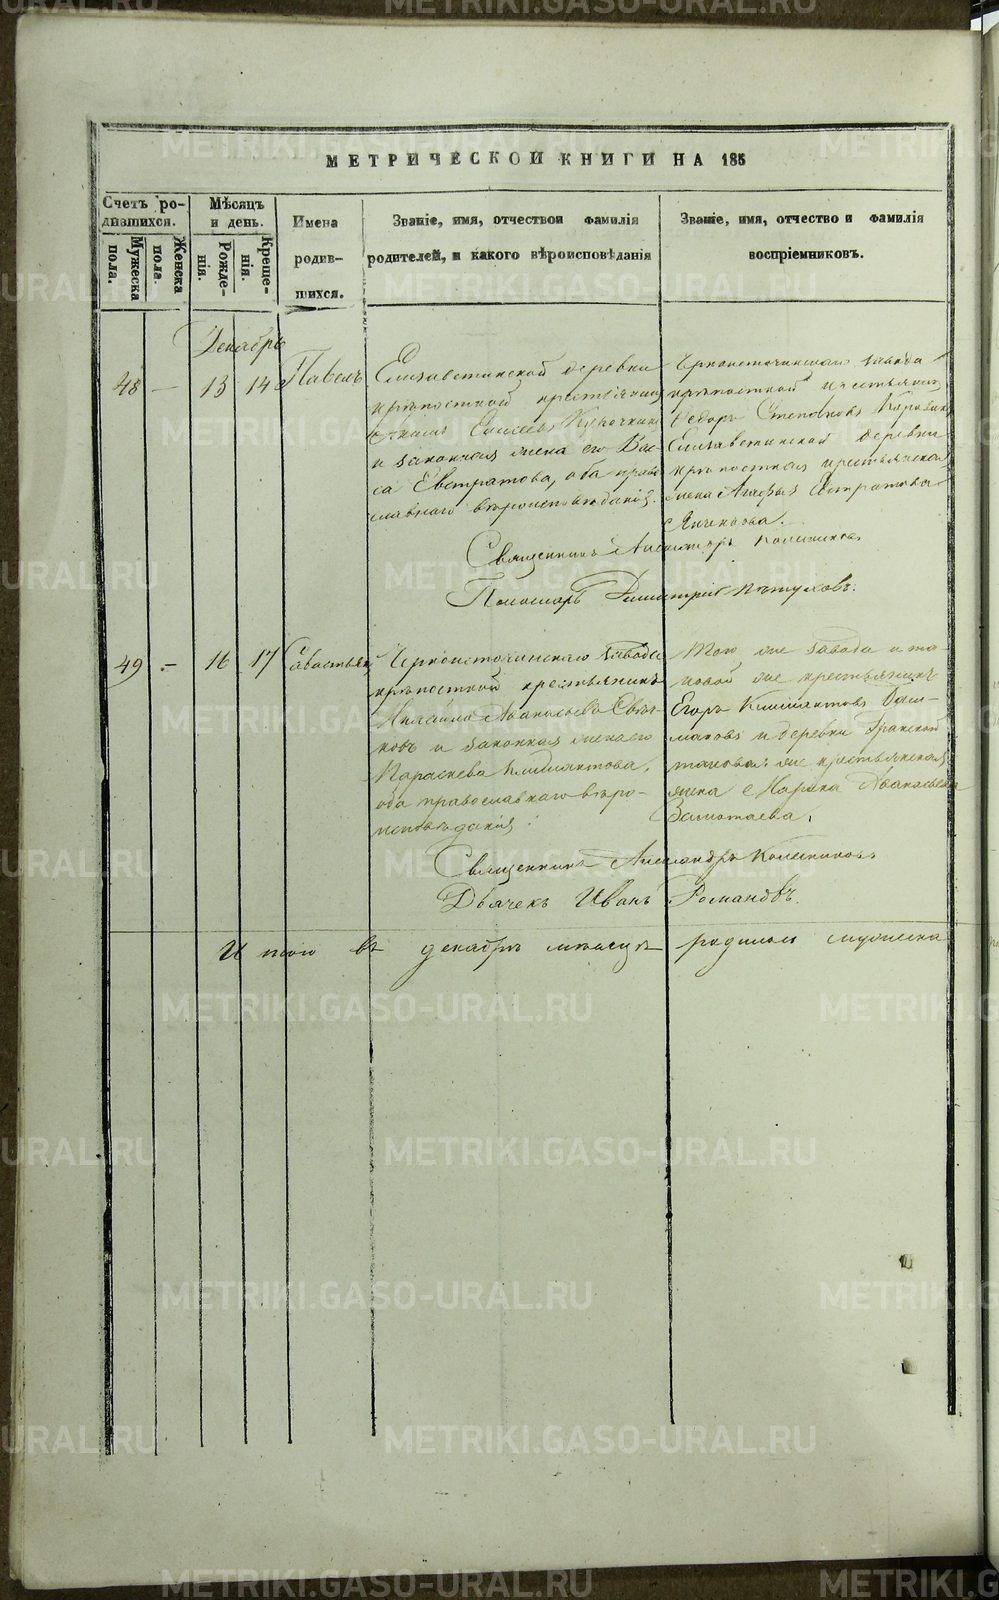 МЕТРИЧЕСКОЙ КНИГИ НА 185
Счетъ ро-
дившихся.
Мужеска
пола.
Женска
пола.
Мѣсяцъ
и день.
Рожде-
нія.
Креще-
нія.
Имена
родив-
шихся.
Званіе, имя, отчествои фамилія
родителей, и какого вѣроисповѣданія
Званіе, имя, отчество и фамилія
воспріемниковъ.
Декабрь
48 — 13 14 Павелъ
Елизаветинской деревни
крѣпостной крестьянинъ
Елисеевъ
и законная жена его Вас-
са Евстратова, оба право
славнаго вѣроисповѣданія.
Черноисточинскаго завода
крѣпостной крестьянинъ
Ѳедоръ Степановъ
Елизаветинской деревни
крѣпостная крестьянская
жена Евстратова
Священникъ Александръ Колесниковъ
Пономарь Димитрій Пѣтуховъ.
49 — 16 17 Савастьянъ
Черноисточинскаго завода
крѣпостной крестьянинъ
Михайло Аѳанасьевъ
и законная жена его
Параскева Климантова,
оба православнаго вѣро-
исповѣданія
Того же завода и та-
ковой же крестьянинъ
Егоръ Климантовъ
и деревни
таковая же крестьянская
жена Марина Аѳанасьева
Замотаева.
Священникъ Александръ Колесниковъ
Дьячекъ Иванъ Романовъ.
Итого въ декабрѣ мѣсяцѣ родилось мужеска
METRIKI.GASO-URAL.RU